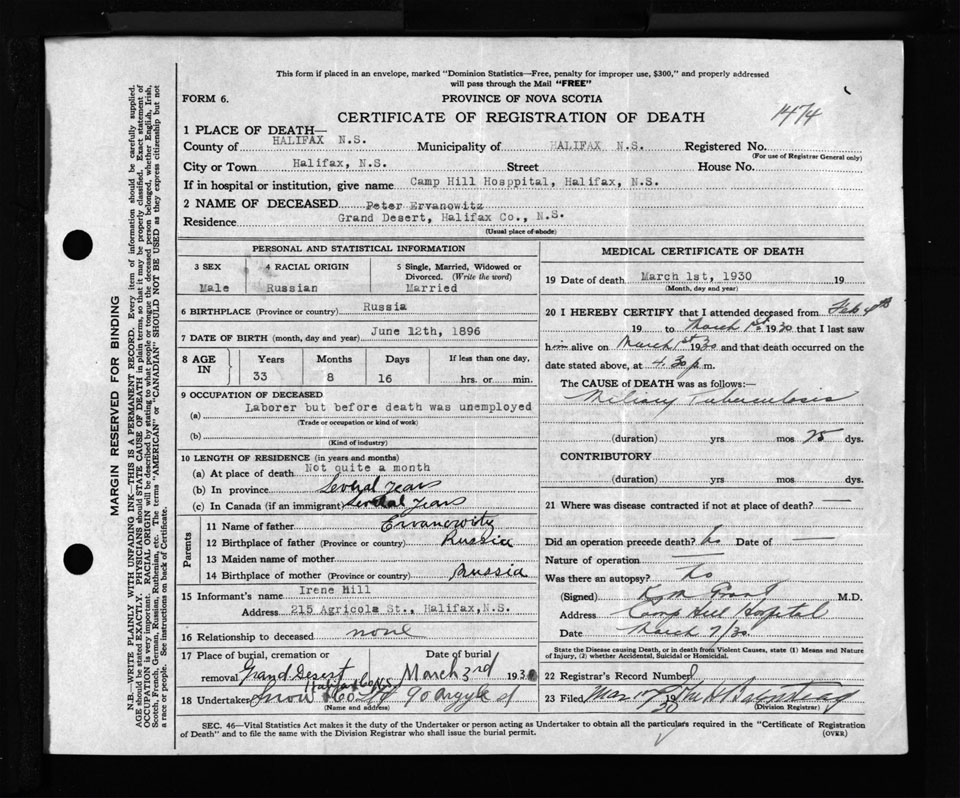 This form if placed in an envelope, marked "Dominion Statistics—Free, penalty for improper use, $300," and properly addressed
will pass through the Mail "FREE"
FORM 6.
PROVINCE OF NOVA SCOTIA
CERTIFICATE OF REGISTRATION OF DEATH
1474
1 PLACE OF DEATH—
County of HALIFAX N.S. Municipality of HALIFAX N.S. Registered No.
(For use of Registrar General only)
City or Town Halifax, N.S. Street House No.
If in hospital or institution, give name Camp Hill Hosppital, Halifax, N.S.
2 NAME OF DECEASED Peter Ervanowitz
Residence Grand Desert, Halifax Co., N.S.
(Usual place of abode)
PERSONAL AND STATISTICAL INFORMATION
3 SEX 4 RACIAL ORIGIN 5 Single, Married, Widowed or
Divorced. (Write the word)
Male Russian Married
6 BIRTHPLACE (Province or country) Russia
7 DATE OF BIRTH (month, day and year) June 12th, 1896
8 AGE IN Years Months Days If less than one day,
33 8 16 hrs. or min.
9 OCCUPATION OF DECEASED
(a) Laborer but before death was unemployed
(Trade or occupation or kind of work)
(b)
(Kind of industry)
10 LENGTH OF RESIDENCE (in years and months)
(a) At place of death Not quite a month
(b) In province Several Years
(c) In Canada (if an immigrant) Several Years
Parents
11 Name of father Ervanowitz
12 Birthplace of father (Province or country) Russia
13 Maiden name of mother
14 Birthplace of mother (Province or country) Russia
15 Informant's name Irene Hill
Address 215 Agricola St., Halifax, N.S.
16 Relationship to deceased none
17 Place of burial, cremation or Date of burial
removal Grand Desert March 3rd 1930
Halifax Co N.S.
18 Undertaker Snow & Co Ltd 90 Argyle
(Name and address)
MEDICAL CERTIFICATE OF DEATH
19 Date of death March 1st, 1930 19
(Month, day and year)
20 I HEREBY CERTIFY that I attended deceased from Feb 4th
19 to March 1st 1930 that I last saw
him alive on March 1st 1930 and that death occurred on the
date stated above, at 4.30 p.m.
The CAUSE of DEATH was as follows:—
Miliary Tuberculosis
(duration) yrs mos 25 dys.
CONTRIBUTORY
(duration) yrs. mos. dys.
21 Where was disease contracted if not at place of death?
Did an operation precede death? No Date of
Nature of operation
Was there an autopsy? No
(Signed) Grant M.D.
Address Camp Hill Hospital
Date March 7/30
State the Disease causing Death, or in death from Violent Causes, state (1) Means and Nature
of Injury, (2) whether Accidental, Suicidal or Homicidal.
22 Registrar's Record Number
23 Filed Mar 19 30
(Division Registrar)
SEC. 46—Vital Statistics Act makes it the duty of the Undertaker or person acting as Undertaker to obtain all the particulars required in the "Certificate of Registration
of Death" and to file the same with the Division Registrar who shall issue the burial permit.
(OVER)
MARGIN RESERVED FOR BINDING
N.B.—WRITE PLAINLY WITH UNFADING INK—THIS IS A PERMANENT RECORD. Every item of information should be carefully supplied.
AGE should be stated EXACTLY. PHYSICIANS should STATE CAUSE OF DEATH in plain terms, so that it may be properly classified. Exact statement of
OCCUPATION is very important. RACIAL ORIGIN will be described by stating to what people or tongue the deceased person belonged, whether English, Irish,
Scotch, French, German, Russian, Ruthenian, etc. The terms "AMERICAN" or "CANADIAN" SHOULD NOT BE USED as they express citizenship but not
a race or people. See instructions on back of Certificate.